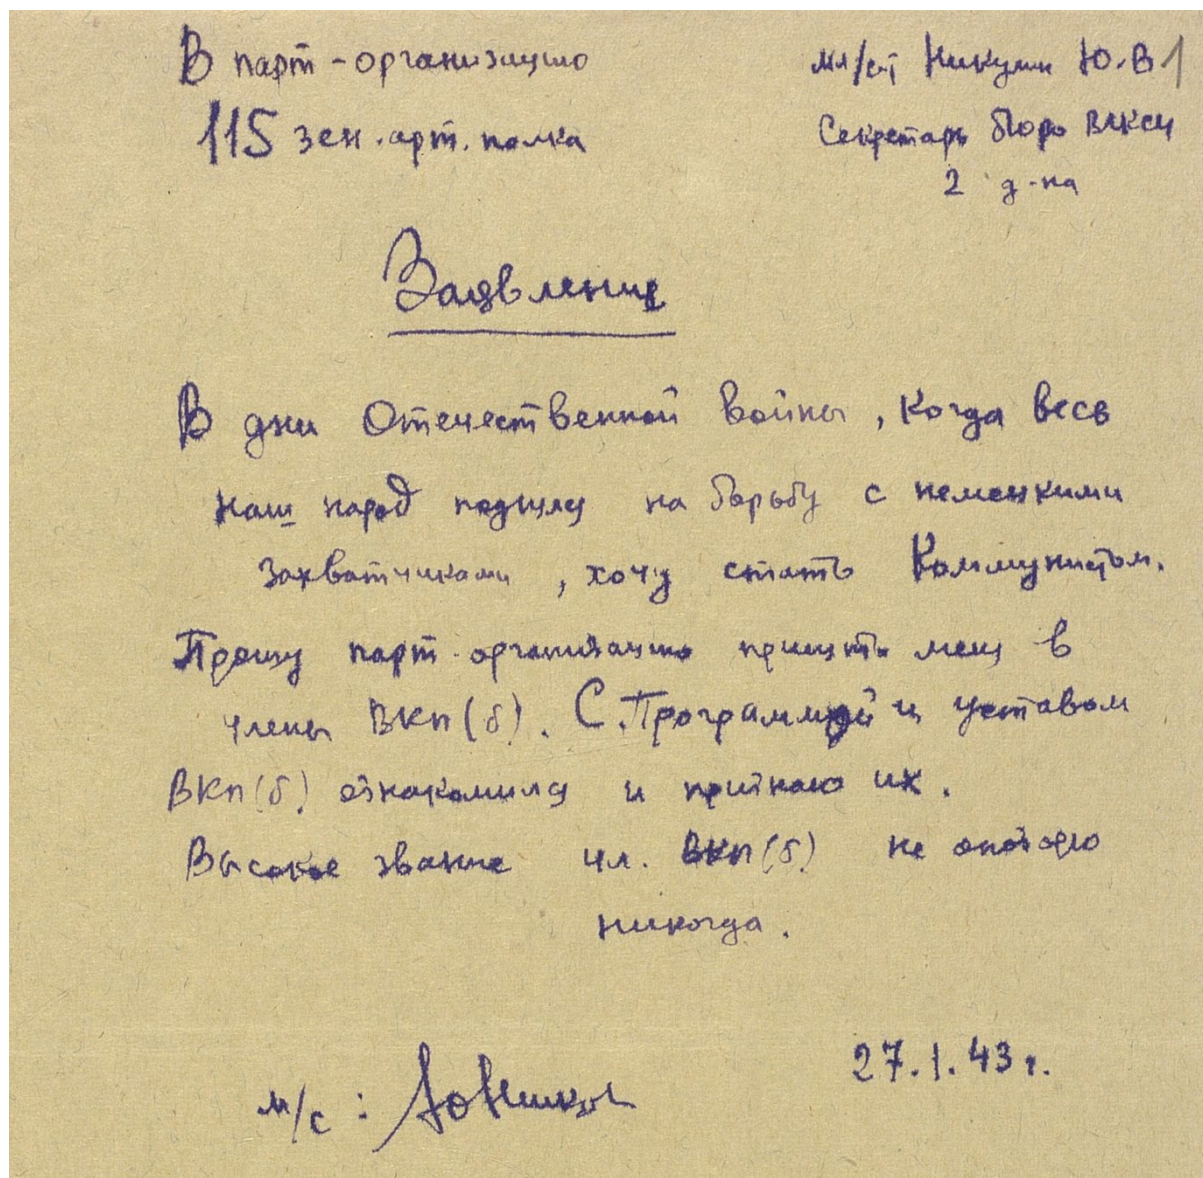 В парт-организацию
115 зен.арт. полка
мл/с-т Никулин Ю.В. 1
Секретарь бюро ВЛКСМ
2 д-на
Заявление
В дни Отечественной войны, когда весь
наш народ поднялся на борьбу с немецкими
захватчиками, хочу стать Коммунистом.
Прошу парт.организацию принять меня в
члены ВКП(б). С Программой и уставом
ВКП(б) ознакомился и признаю их.
Высокое звание чл. ВКП(б) не опозорю
никогда.
27.1.43 г.
м/с: ЮНикул